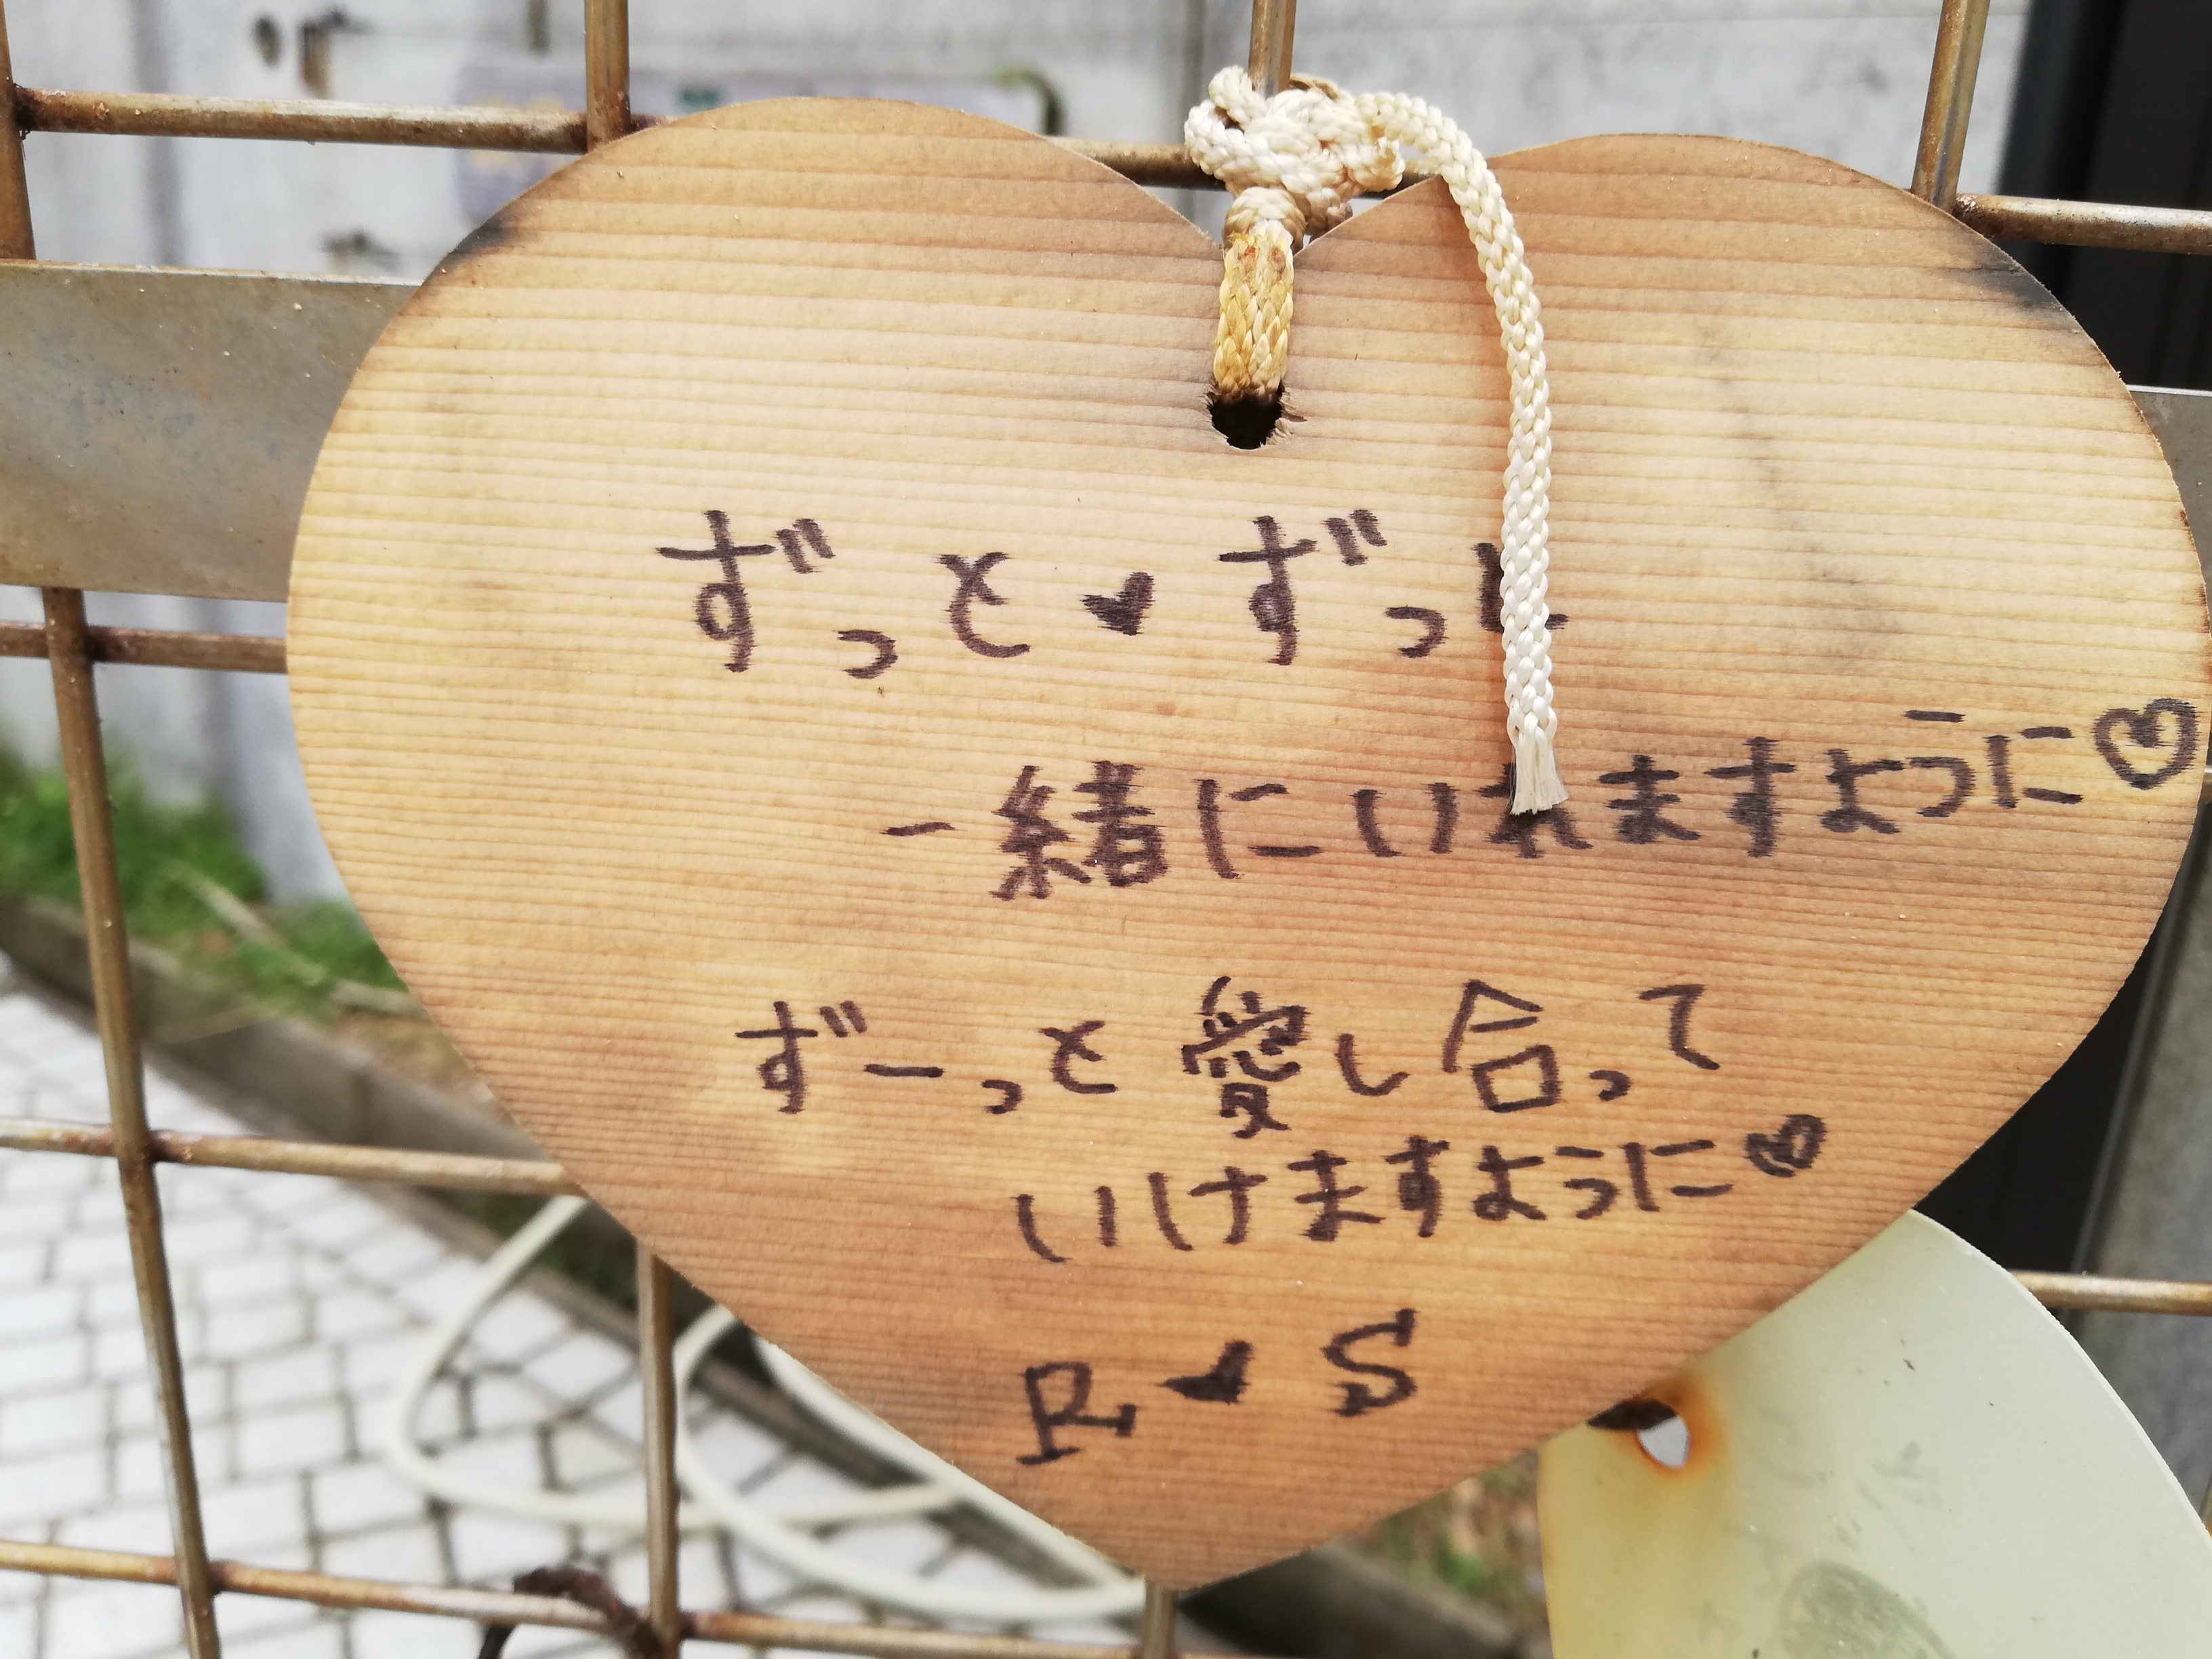 ずっと♥ずっと
一緒にいれますように♡
ずーっと愛し合って
いけますように♥
R♥S